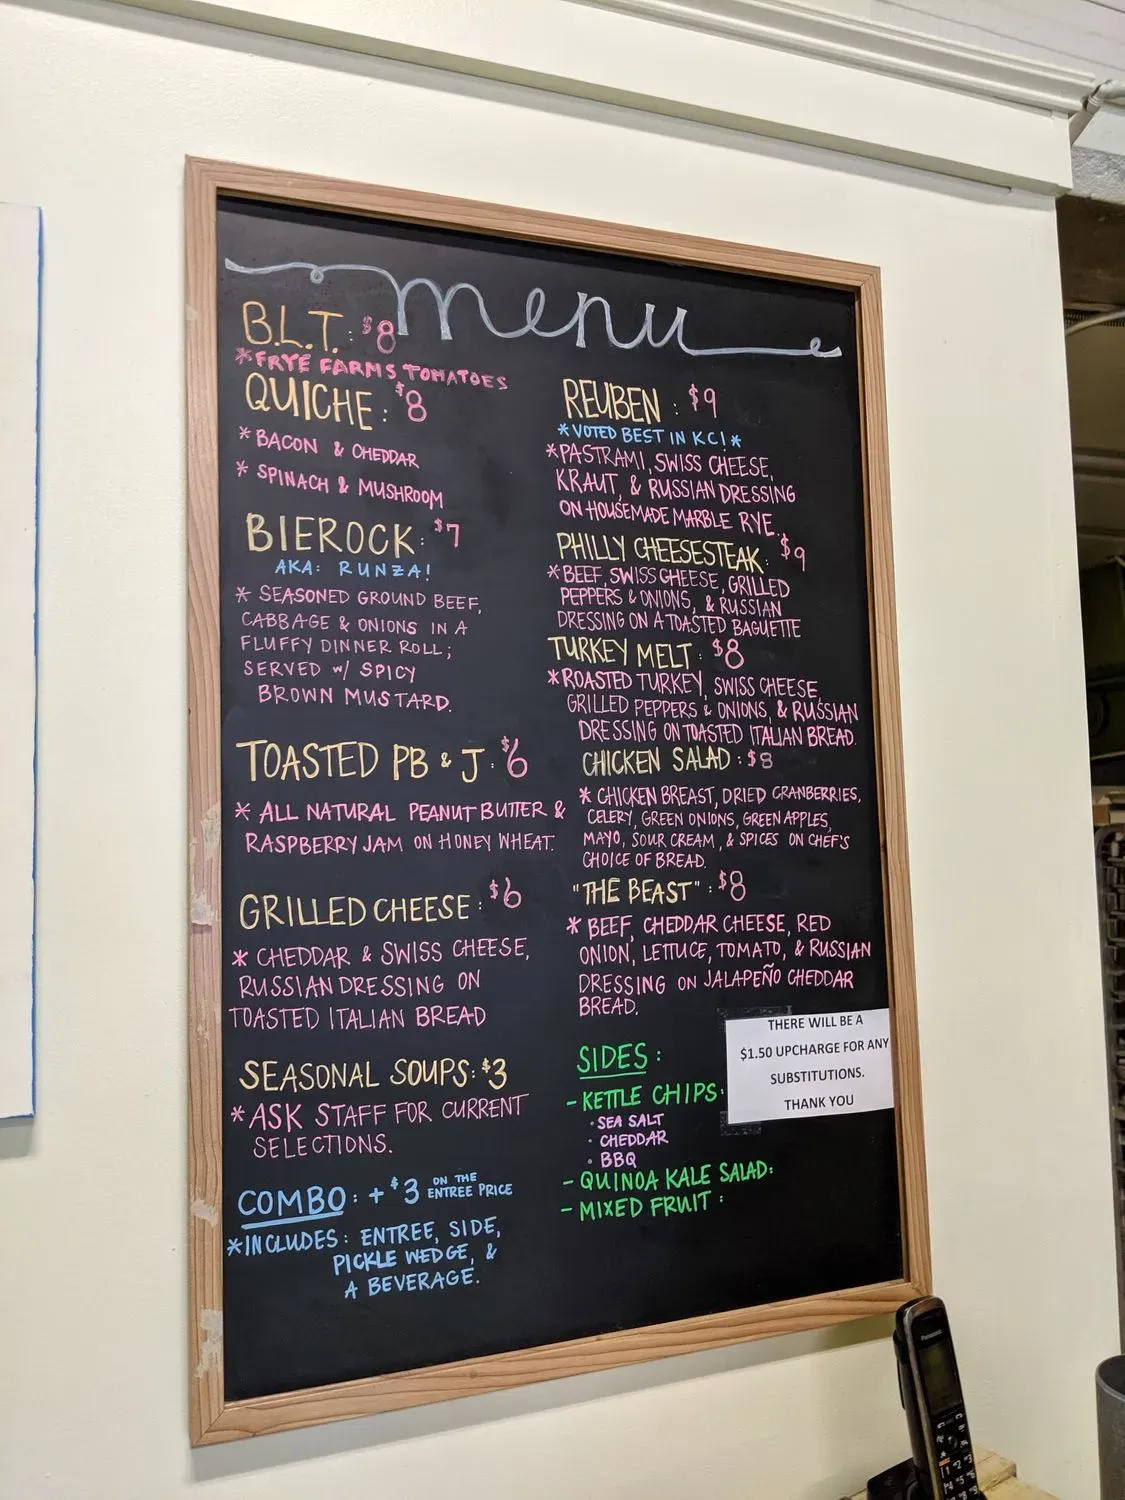 menu
B.L.T.: $8
*FRYE FARMS TOMATOES
QUICHE: $8
* BACON & CHEDDAR
* SPINACH & MUSHROOM
BIEROCK: $7
AKA: RUNZA!
* SEASONED GROUND BEEF,
CABBAGE & ONIONS IN A
FLUFFY DINNER ROLL;
SERVED w/ SPICY
BROWN MUSTARD.
TOASTED PB & J: $6
* ALL NATURAL PEANUT BUTTER &
RASPBERRY JAM ON HONEY WHEAT.
GRILLED CHEESE: $6
* CHEDDAR & SWISS CHEESE,
RUSSIAN DRESSING ON
TOASTED ITALIAN BREAD
SEASONAL SOUPS: $3
* ASK STAFF FOR CURRENT
SELECTIONS.
COMBO: + $3 ON THE
ENTREE PRICE
*INCLUDES: ENTREE, SIDE,
PICKLE WEDGE, &
A BEVERAGE.
REUBEN: $9
*VOTED BEST IN KC!*
*PASTRAMI, SWISS CHEESE,
KRAUT, & RUSSIAN DRESSING
ON HOUSEMADE MARBLE RYE.
PHILLY CHEESESTEAK: $9
*BEEF, SWISS CHEESE, GRILLED
PEPPERS & ONIONS, & RUSSIAN
DRESSING ON A TOASTED BAGUETTE
TURKEY MELT: $8
*ROASTED TURKEY, SWISS CHEESE,
GRILLED PEPPERS & ONIONS, & RUSSIAN
DRESSING ON TOASTED ITALIAN BREAD.
CHICKEN SALAD: $8
* CHICKEN BREAST, DRIED CRANBERRIES,
CELERY, GREEN ONIONS, GREEN APPLES,
MAYO, SOUR CREAM, & SPICES ON CHEF'S
CHOICE OF BREAD.
"THE BEAST": $8
* BEEF, CHEDDAR CHEESE, RED
ONION, LETTUCE, TOMATO, & RUSSIAN
DRESSING ON JALAPEÑO CHEDDAR
BREAD.
SIDES:
- KETTLE CHIPS:
· SEA SALT
· CHEDDAR
· BBQ
- QUINOA KALE SALAD:
- MIXED FRUIT:
THERE WILL BE A
$1.50 UPCHARGE FOR ANY
SUBSTITUTIONS.
THANK YOU
Panasonic